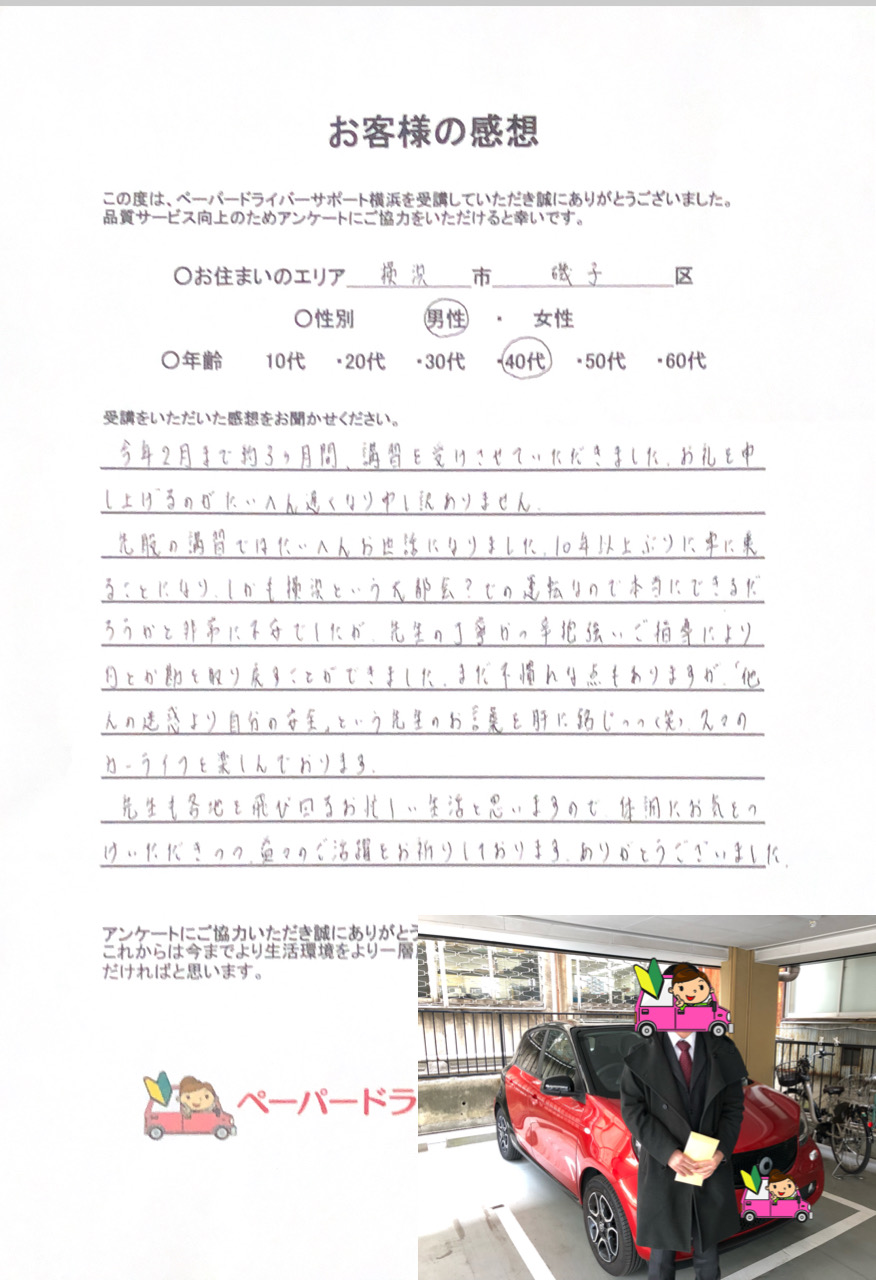 お客様の感想
この度は、ペーパードライバーサポート横浜を受講していただき誠にありがとうございました。
品質サービス向上のためアンケートにご協力をいただけると幸いです。
〇お住まいのエリア 横浜 市 磯子 区
〇性別 男性 ・ 女性
〇年齢 10代 ・20代 ・30代 ・40代 ・50代 ・60代
受講をいただいた感想をお聞かせください。
今年2月まで約3ヶ月間、講習を受けさせていただきました。お礼を申
し上げるのがたいへん遅くなり申し訳ありません。
先般の講習ではたいへんお世話になりました。10年以上ぶりに車に乗
ることになり、しかも横浜という大都会?での運転なので本当にできるだ
ろうかと非常に不安でしたが、先生の丁寧かつ辛抱強いご指導により
何とか勘を取り戻すことができました。まだ不慣れな点もありますが、「他
人の迷惑より自分の安全」という先生のお言葉を肝に銘じつつ(笑)、久々の
カーライフを楽しんでおります。
先生も各地を飛び回るお忙しい生活と思いますので、体調にお気をつ
けいただきつつ、益々のご活躍をお祈りしております。ありがとうございました。
アンケートにご協力いただき誠にありがとう
これからは今までより生活環境をより一層
だければと思います。
ペーパードラ